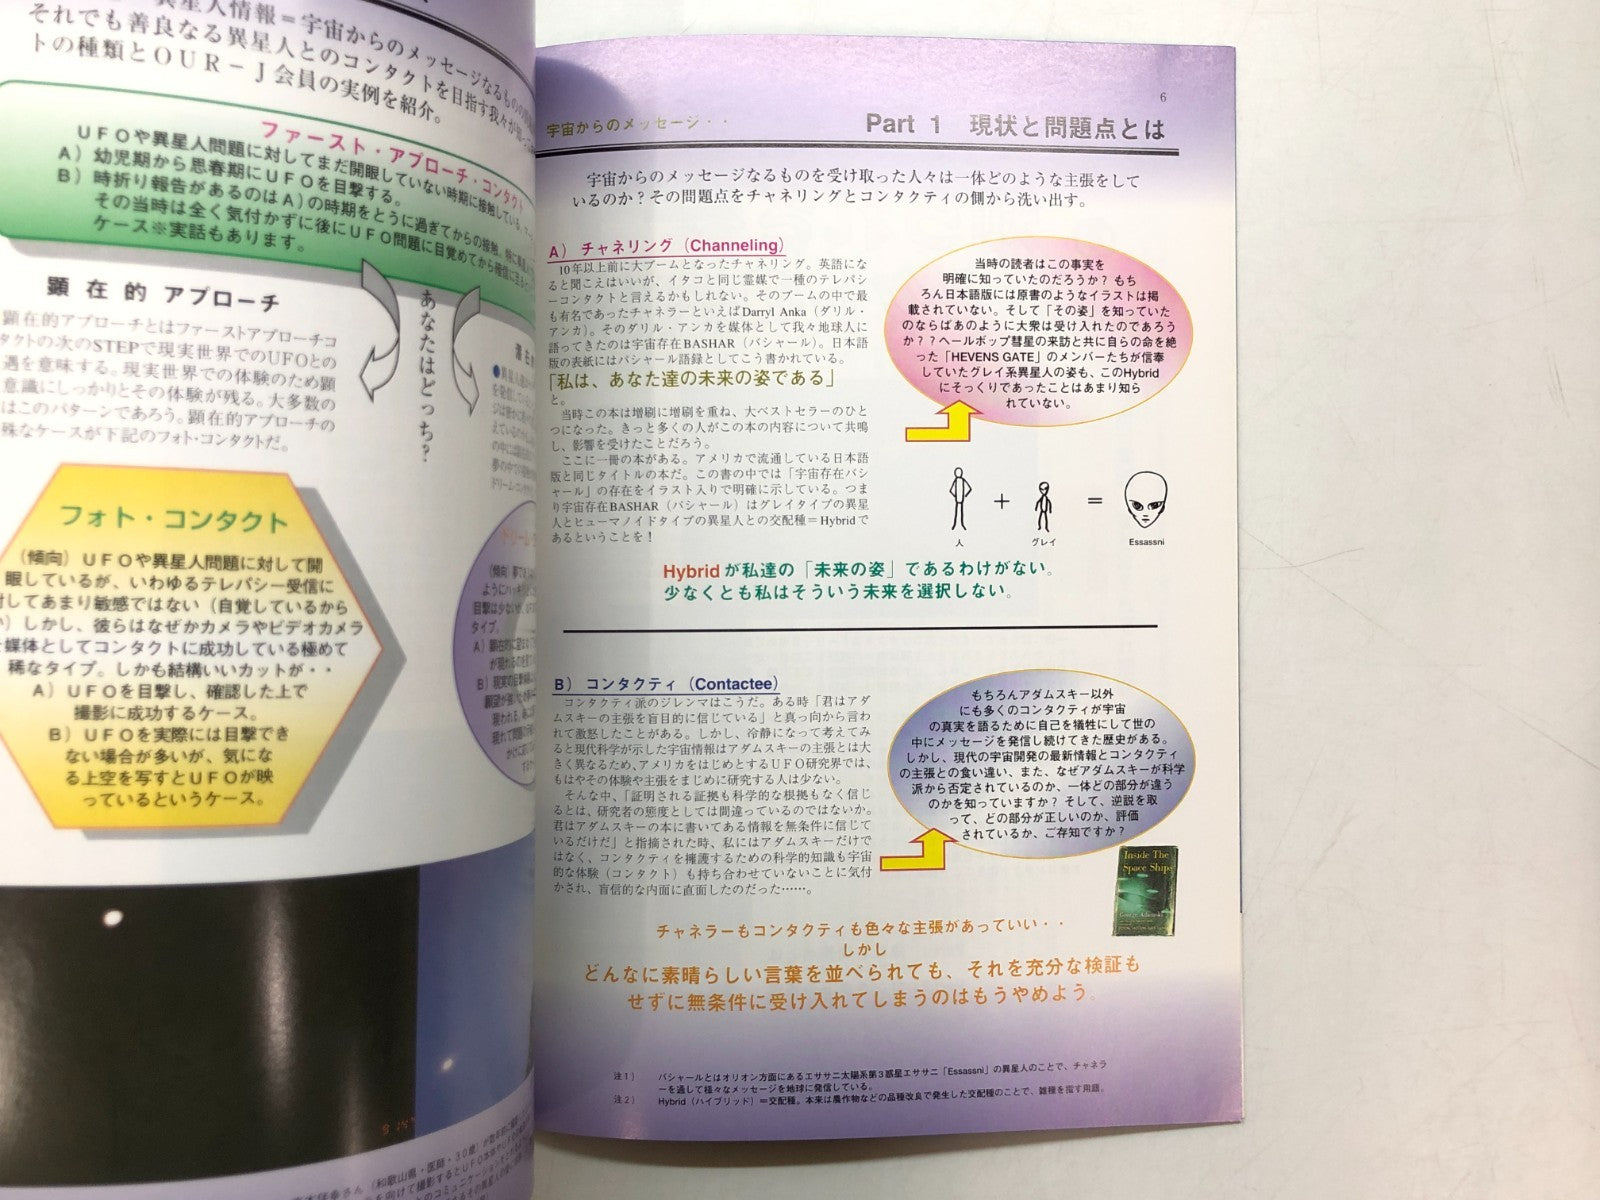 異星人情報＝宇宙からのメッセージなるものの
それでも善良なる異星人とのコンタクトを目指す我々が
トの種類とＯＵＲ－Ｊ会員の実例を紹介。
ファースト・アプローチ・コンタクト
ＵＦＯや異星人問題に対してまだ開眼していない時期に接触している。
Ａ）幼児期から思春期にＵＦＯを目撃する。
Ｂ）時折り報告があるのはＡ）の時期をとうに過ぎてからの接触。
その当時は全く気付かずに後にＵＦＯ問題に目覚めてから確信に
ケース※実話もあります。
顕在的アプローチ
顕在的アプローチとはファーストアプローチコ
タクトの次のSTEPで現実世界でのUFOとの
遇を意味する。現実世界での体験のため顕
意識にしっかりとその体験が残る。大多数の
はこのパターンであろう。顕在的アプローチの
殊なケースが下記のフォト・コンタクトだ。
あなたはどっち？
フォト・コンタクト
（傾向）ＵＦＯや異星人問題に対して開
眼しているが、いわゆるテレパシー受信に
対してあまり敏感ではない（自覚しているから
）しかし、彼らはなぜかカメラやビデオカメラ
媒体としてコンタクトに成功している極めて
稀なタイプ。しかも結構いいカットが・・
Ａ）ＵＦＯを目撃し、確認した上で
撮影に成功するケース。
Ｂ）ＵＦＯを実際には目撃でき
ない場合が多いが、気にな
る上空を写すとＵＦＯが映
っているというケース。
（和歌山県・医師・30歳）が
6
宇宙からのメッセージ・・
Part 1　現状と問題点とは
宇宙からのメッセージなるものを受け取った人々は一体どのような主張をして
いるのか？その問題点をチャネリングとコンタクティの側から洗い出す。
A） チャネリング（Channeling）
10年以上前に大ブームとなったチャネリング。英語にな
ると聞こえはいいが、イタコと同じ霊媒で一種のテレパシ
ーコンタクトと言えるかもしれない。そのブームの中で最
も有名であったチャネラーといえばDarryl Anka（ダリル・
アンカ）。そのダリル・アンカを媒体として我々地球人に
語ってきたのは宇宙存在BASHAR（バシャール）。日本語
版の表紙にはバシャール語録としてこう書かれている。
「私は、あなた達の未来の姿である」
と。
当時この本は増刷に増刷を重ね、大ベストセラーのひと
つになった。きっと多くの人がこの本の内容について共鳴
し、影響を受けたことだろう。
ここに一冊の本がある。アメリカで流通している日本語
版と同じタイトルの本だ。この書の中では「宇宙存在バシ
ャール」の存在をイラスト入りで明確に示している。つま
り宇宙存在BASHAR（バシャール）はグレイタイプの異星
人とヒューマノイドタイプの異星人との交配種＝Hybridで
あるということを！
当時の読者はこの事実を
明確に知っていたのだろうか？もち
ろん日本語版には原書のようなイラストは掲
載されていない。そして「その姿」を知っていた
のならばあのように大衆は受け入れたのであろう
か？？ヘールボップ彗星の来訪と共に自らの命を絶
った「HEVENS GATE」のメンバーたちが信奉
していたグレイ系異星人の姿も、このHybrid
にそっくりであったことはあまり知ら
れていない。
＋　＝
人　グレイ　Essassni
Hybridが私達の「未来の姿」であるわけがない。
少なくとも私はそういう未来を選択しない。
B） コンタクティ（Contactee）
コンタクティ派のジレンマはこうだ。ある時「君はアダ
ムスキーの主張を盲目的に信じている」と真っ向から言わ
れて激怒したことがある。しかし、冷静になって考えてみ
ると現代科学が示した宇宙情報はアダムスキーの主張とは大
きく異なるため、アメリカをはじめとするＵＦＯ研究界では、
もはやその体験や主張をまじめに研究する人は少ない。
そんな中、「証明される証拠も科学的な根拠もなく信じ
るとは、研究者の態度としては間違っているのではないか。
君はアダムスキーの本に書いてある情報を無条件に信じて
いるだけだ」と指摘された時、私にはアダムスキーだけで
はなく、コンタクティを擁護するための科学的知識も宇宙
的な体験（コンタクト）も持ち合わせていないことに気付
かされ、盲信的な内面に直面したのだった……。
もちろんアダムスキー以外
にも多くのコンタクティが宇宙
の真実を語るために自己を犠牲にして世の
中にメッセージを発信し続けてきた歴史がある。
しかし、現代の宇宙開発の最新情報とコンタクティ
の主張との食い違い、また、なぜアダムスキーが科学
派から否定されているのか、一体どの部分が違う
のかを知っていますか？そして、逆説を取
って、どの部分が正しいのか、評価
されているか、ご存知ですか？
Inside The
Space Ships
George Adamski
チャネラーもコンタクティも色々な主張があっていい・・
しかし
どんなに素晴らしい言葉を並べられても、それを充分な検証も
せずに無条件に受け入れてしまうのはもうやめよう。
注１）　バシャールとはオリオン方面にあるエササニ太陽系第３惑星エササニ「Essassni」の異星人のことで、チャネラ
ーを通して様々なメッセージを地球に発信している。
注２）　Hybrid（ハイブリッド）＝交配種。本来は農作物などの品種改良で発生した交配種のことで、雑種を指す用語。